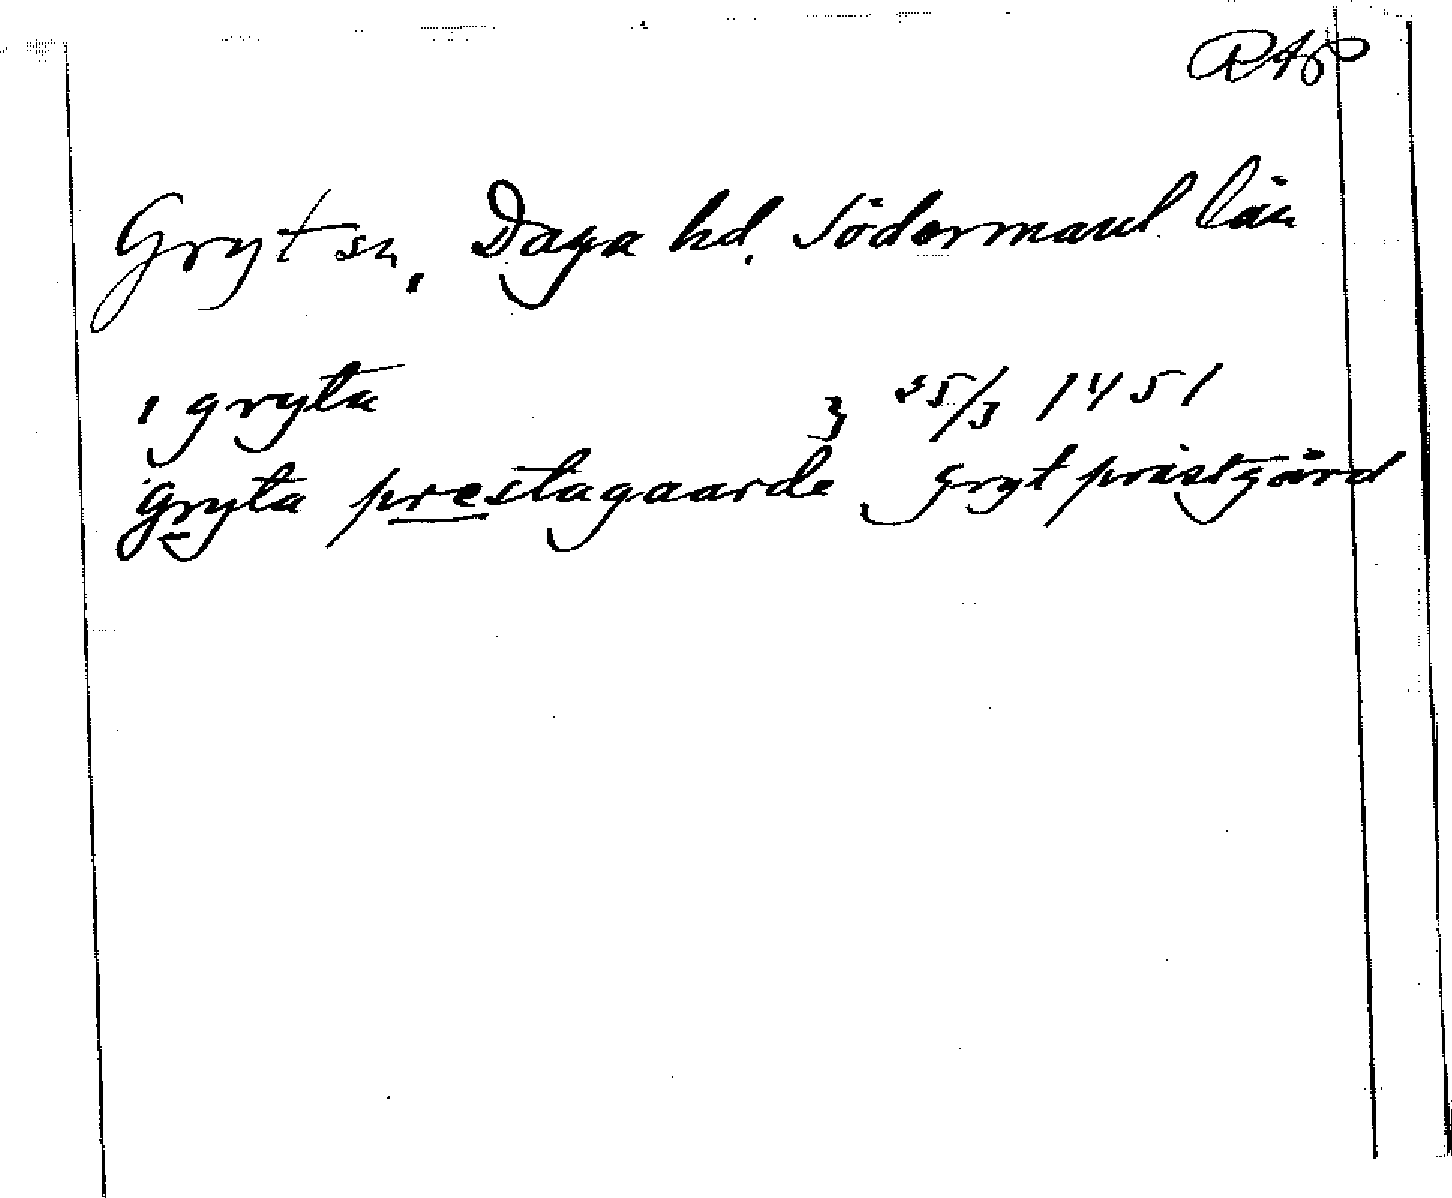 RAp
Gryt sn, Daga hd. Södermanl. län
i gryta } 25/3 1451
Gryta prestagaarde Gryt prästgård